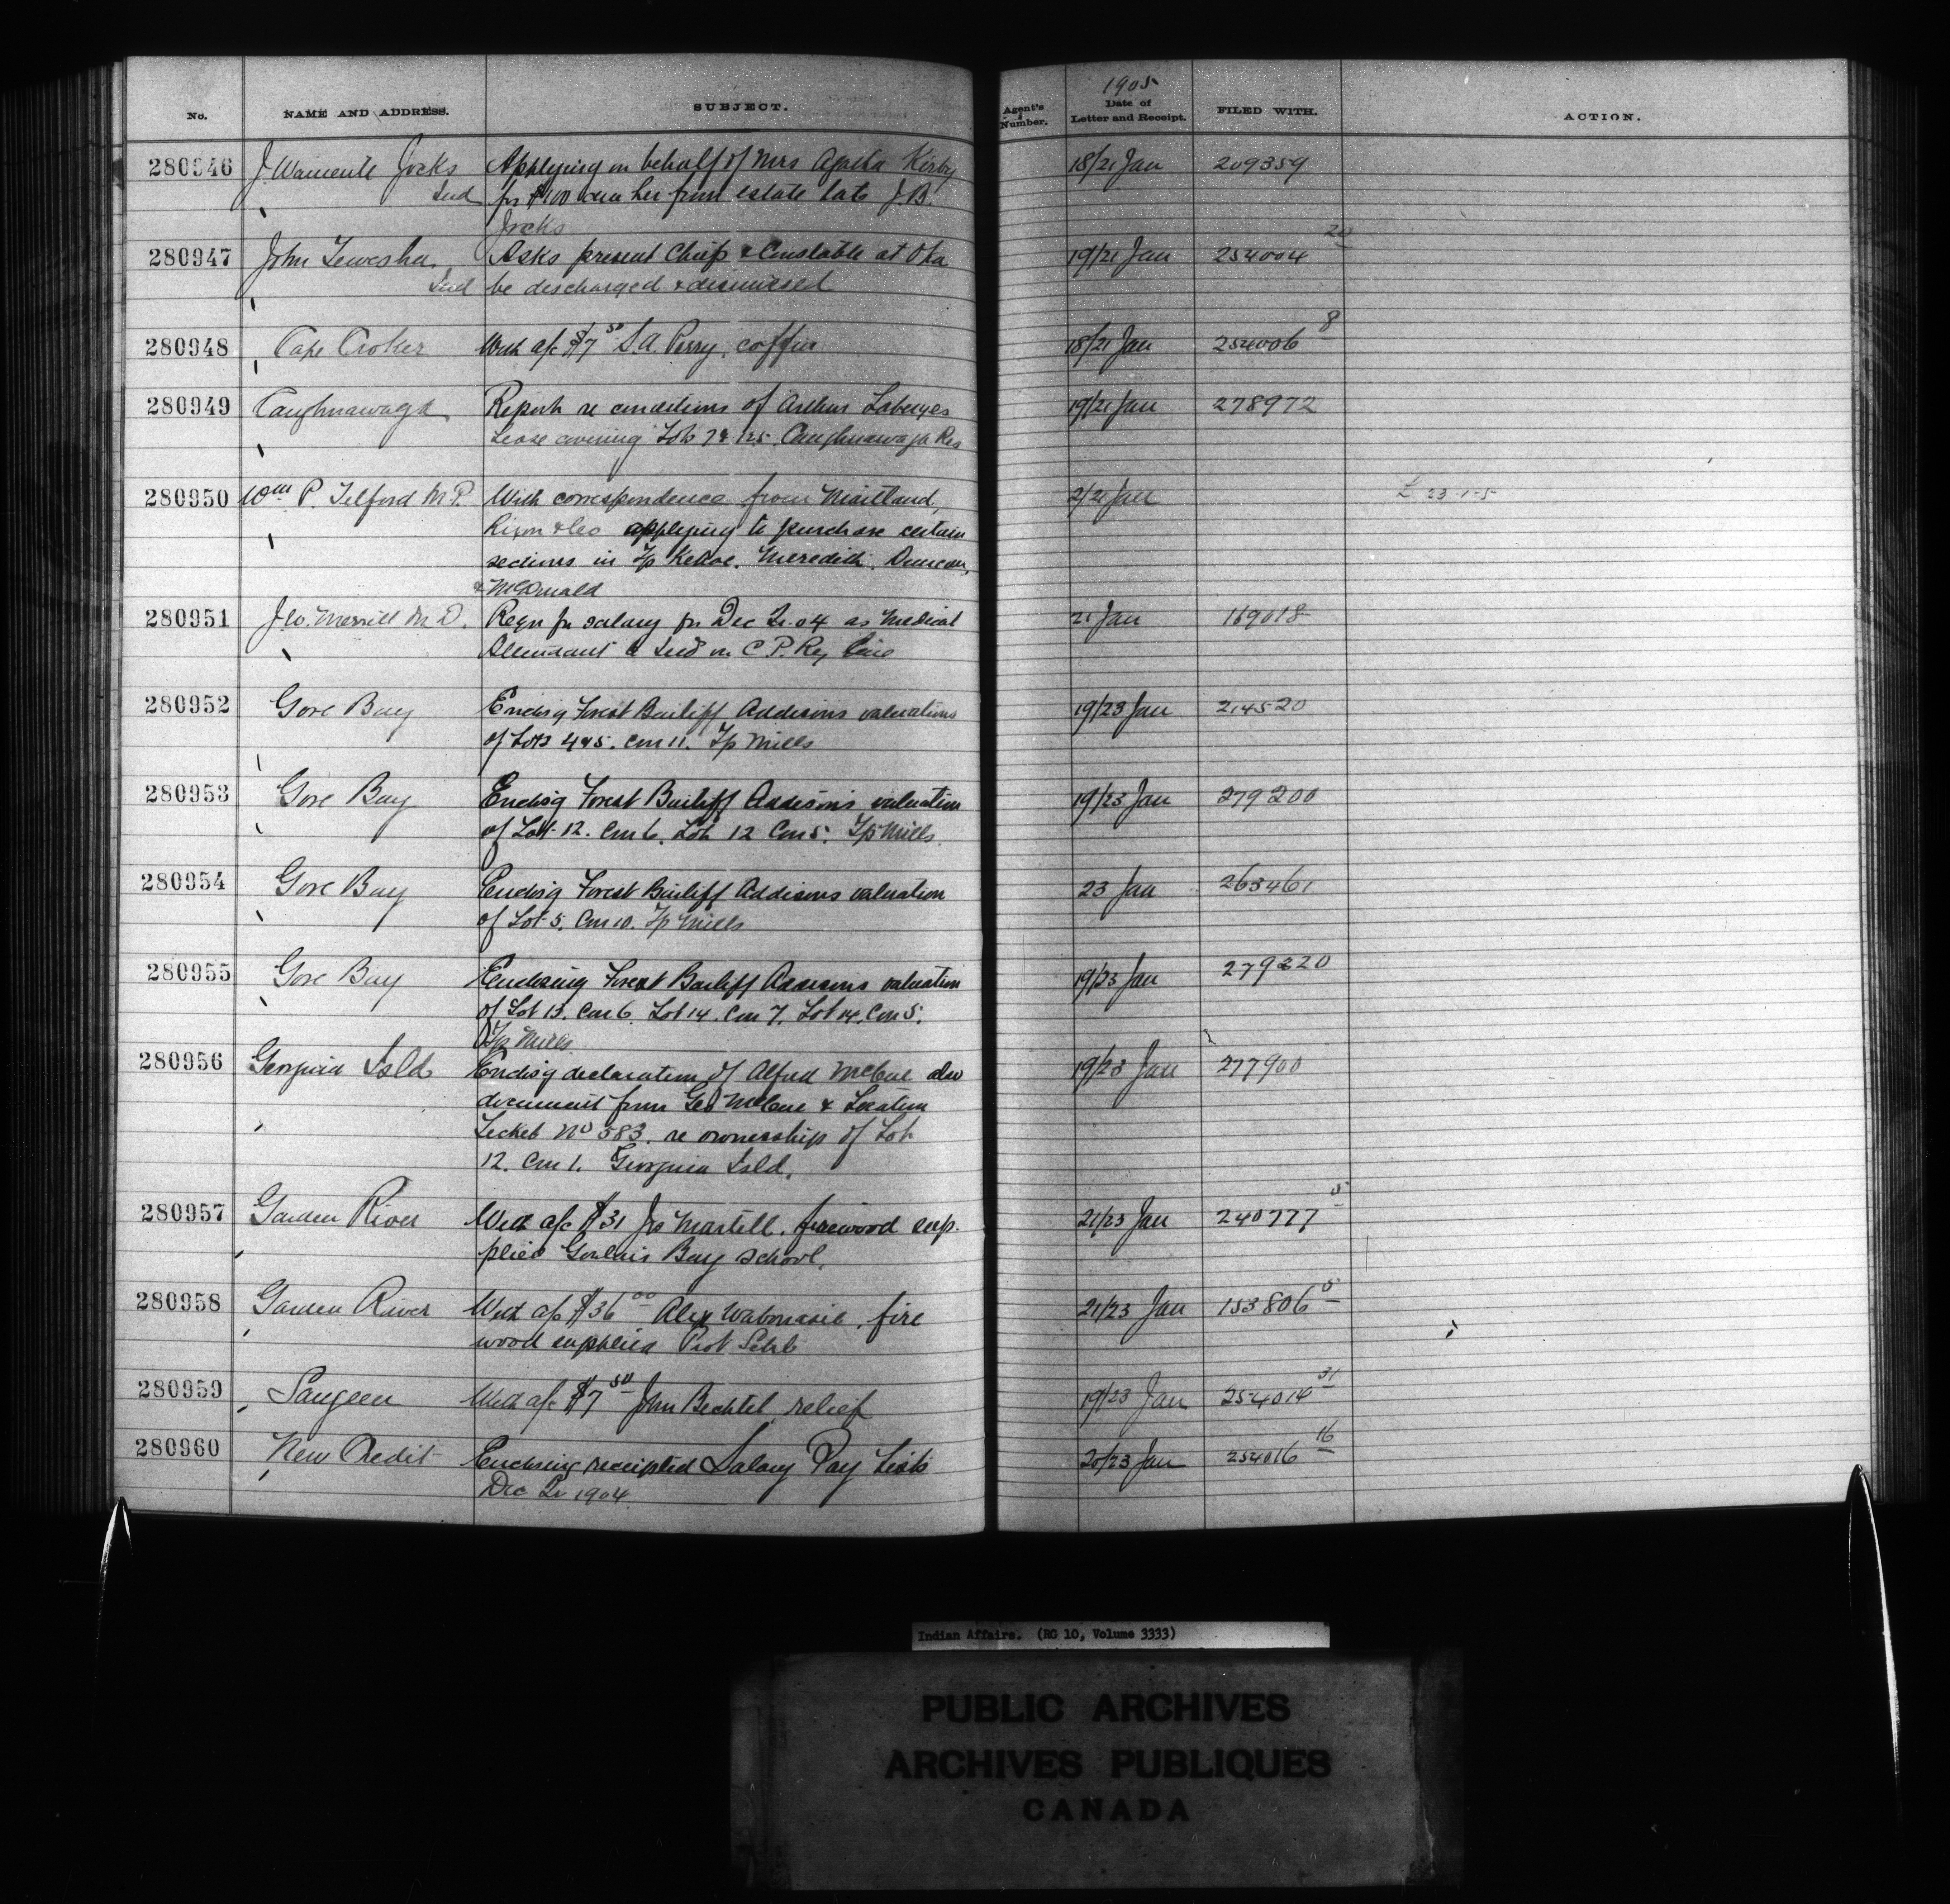 No. NAME AND ADDRESS. SUBJECT. Agent's Number. 1905 Date of Letter and Receipt. FILED WITH. ACTION.
280946 J. Jocks Applying on behalf of Mrs Agatha Kirby 18/21 Jan 209359
Ind for $100 due her from estate late J.B.
Jocks
280947 John Tewesha Asks present Chief & Constable at Oka 19/21 Jan 254004 20
Ind be descharged & dismissed
280948 Cape Croker With a/c $7 50 S.A. Perry, coffin 18/21 Jan 254006 8
280949 Caughnawaga Report re conditions of Arthur Laberges 19/21 Jan 278972
Lease covering Lots 125. Caughnawaga Res
280950 Wm P. Telford M.P. With correspondence from Maitland, 2/21 Jan L 23-1-5
Rixon & Co applying to purchase certain
sections in Tp Kehoe. Meredith. Duncan,
& McDonald
280951 J.W. Merrill M.D. Reqn for salary for Dec Qr. 04 as Medical 21 Jan 169018
Attendant to Inds on C P. Ry line
280952 Gore Bay Encl'g Forest Bailiff Addisons valuations 19/23 Jan 214520
of Lots 4 & 5. Con 11. Tp Mills
280953 Gore Bay Enclos'g Forest Bailiff Addison's valuation 19/23 Jan 279200
of Lot 12. Con 6. Lot 12 Con 5. Tp Mills
280954 Gore Bay Enclos'g Forest Bailiff Addisons valuation 23 Jan 263461
of Lot 5. Con 10. Tp Mills
280955 Gore Bay Enclosing Forest Bailiff Addisons valuation 19/23 Jan 279220
of Lot 13. Con 6. Lot 14. Con 7. Lot 14. Con 5.
Tp Mills
280956 Georgina Isld Enclos'g declaration of Alfred McCue also 19/23 Jan 277900
document from Geo McCue & Location
Ticket No 583. re ownership of Lot
12. Con 1. Georgina Isld.
280957 Garden River With a/c $31 Jno Martell, firewood sup- 21/23 Jan 240777 5
plied Goulais Bay School.
280958 Garden River With a/c $36 00 Alex Wabonasie, fire 21/23 Jan 153806 5
wood supplied Prot Schl
280959 Saugeen With a/c $7 50 John Bechtel relief 19/23 Jan 254014 31
280960 New Credit Enclosing receipted Salary Pay Lists 20/23 Jan 254016 16
Dec Qr 1904.
Indian Affairs. (RG 10, Volume 3333)
PUBLIC ARCHIVES
ARCHIVES PUBLIQUES
CANADA